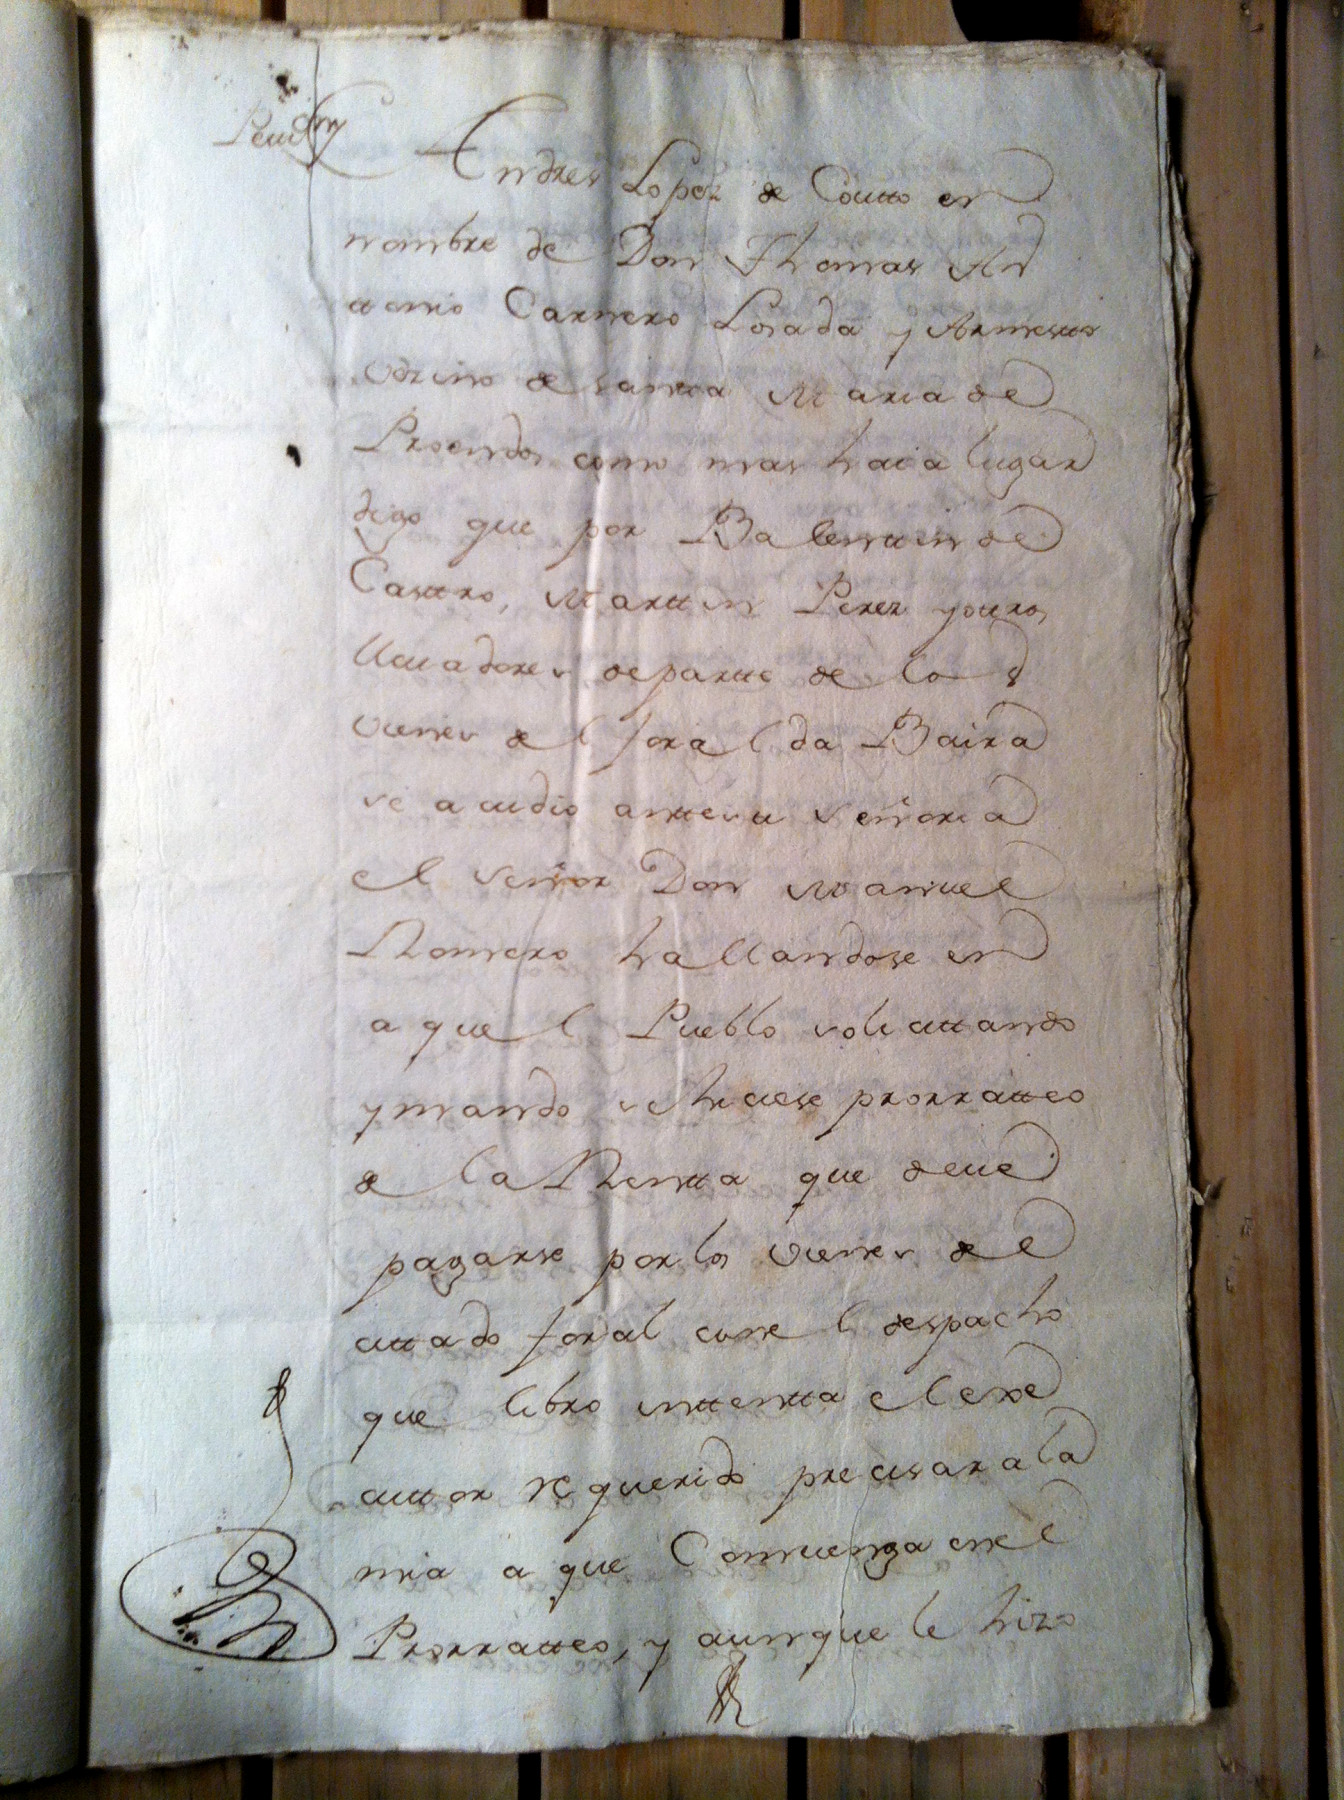 Andres Lopez de Coutto en
nombre de Don Thomas An
ttonio Carnero Losada y Armestto
vezino de santta Maria de
Proendos como mas haia lugar
digo que por Balenttin de
Casttro, Marttin Perez y ottros
lleuadores de partte de los
vienes del foral da Baira
se acudio antte su señoria
el señor Don Manuel
Romero hallandose en
aquel Pueblo solicittando
y mando se hiciese prorratteo
de la Rentta que deue
pagarse por los vienes del
cittado foral con el despacho
que libro inttentta el exe
cuttor requerido precisar a la
mia a que Conuenga en el
Prorratteo, y aunque le hizo